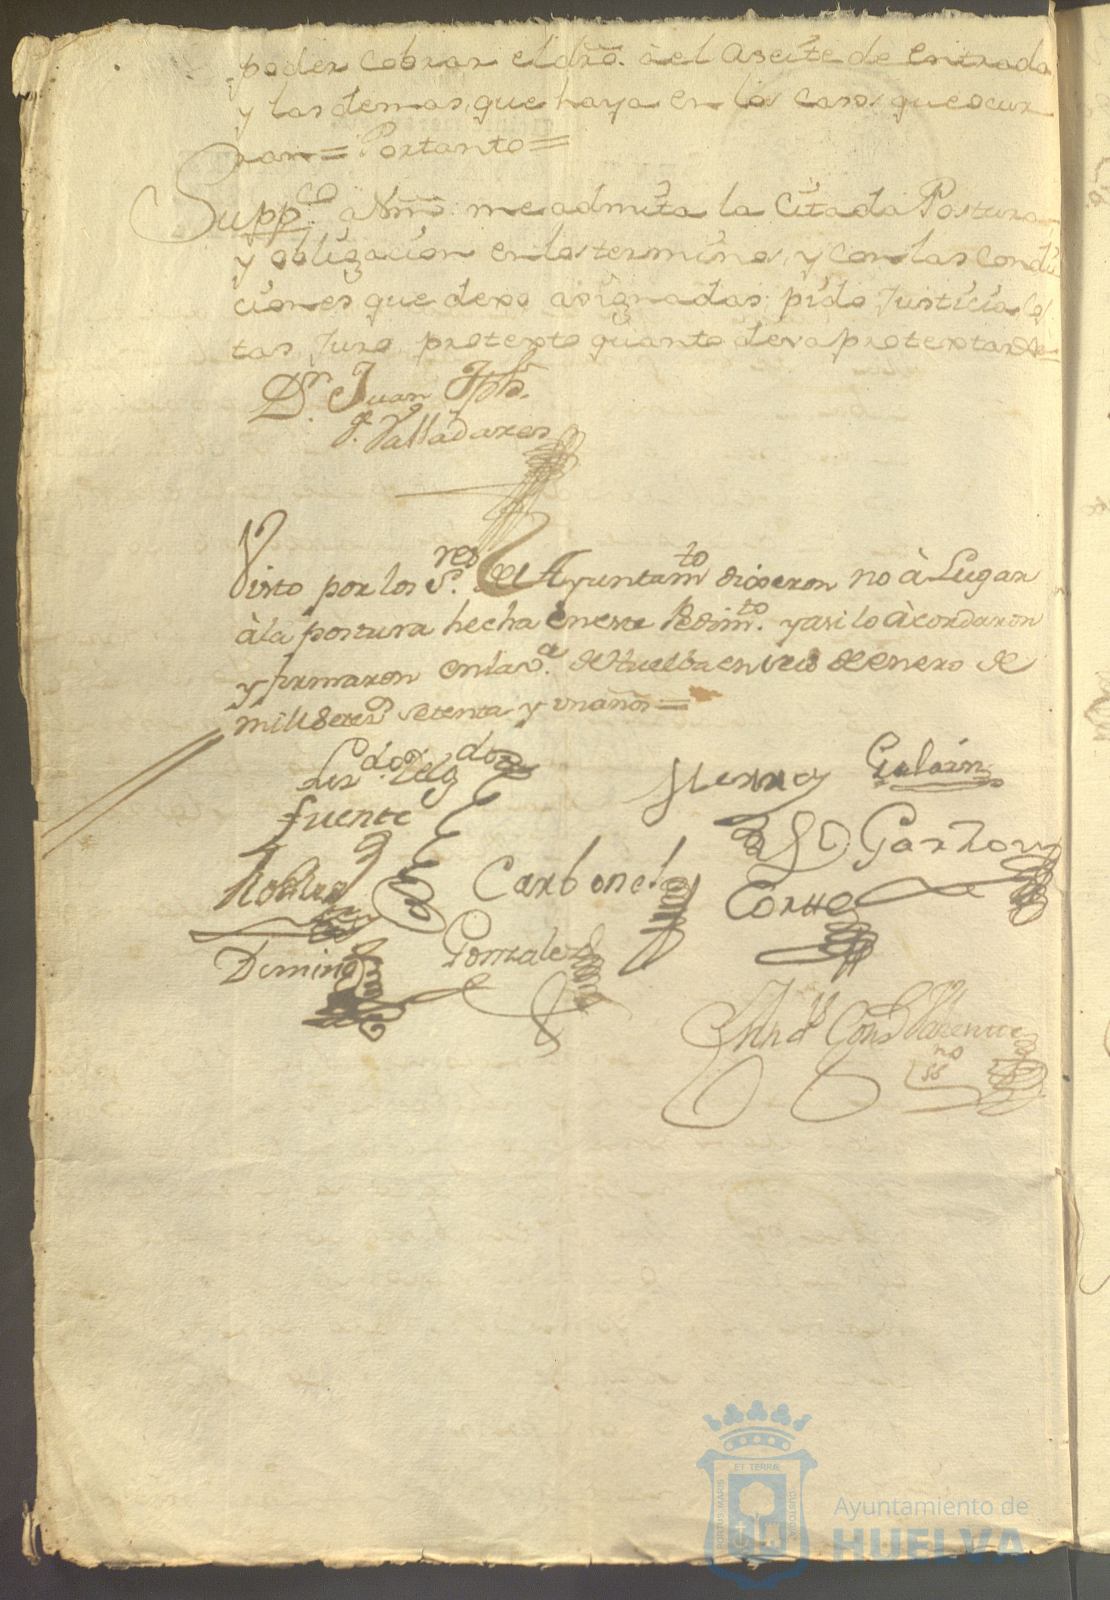 poder cobrar el dro. à el Aseite de entrada
y las demas, que haya en los casos que ocur
ran = Portanto =
Suppco. a Vms. me admita la Citada Postura
y obligacion en los terminos, y con las condi
ciones que dexo asignadas; pido Justicia, cos
tas, Juro, protexto quanto deva protextar =
Dr. Juan Jph.
Valladares
Visto por los Sres. del Ayuntamto. dixeron no à Lugar
à la postura hecha en este Pedimto. y asi lo àcordaron
y firmaron en la va. de Huelba en tres de enero de
mil setesos. setenta y un años =
Lizdo. Delgdo.
fuente
Galvin
Garzon
Robles
Carbonel
Cortte
Domingz
Gonzalez
ssno
ET TERRÆ
PORTUS MARIS
CUSTODIA
Ayuntamiento de
HUELVA